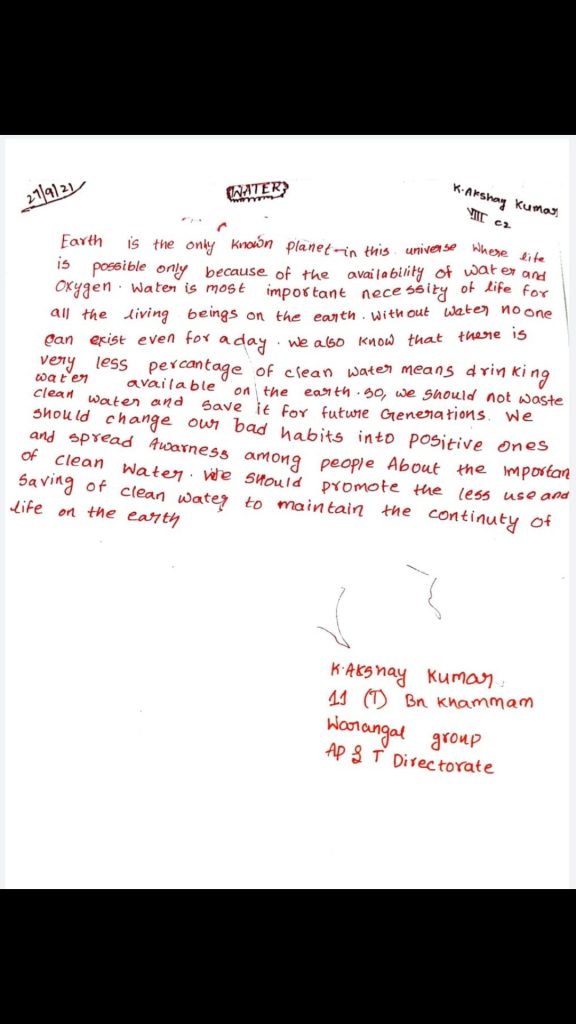 27/9/21
WATER
K. Akshay Kumar
VIII C2
Earth is the only known planet in this universe where life
is possible only because of the availability of water and
Oxygen. Water is most important necessity of life for
all the living beings on the earth. Without water no one
can exist even for a day. We also know that there is
very less percantage of clean water means drinking
water available on the earth. So, we should not waste
clean water and save it for future Generations. We
should change our bad habits into positive ones
and spread Awarness among people About the importan
of clean water. We should promote the less use and
saving of clean water to maintain the continuty of
life on the earth
K. Akshay Kumar
11 (T) Bn Khammam
Warangal group
AP & T Directorate